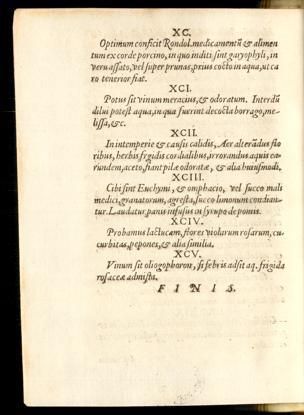 XC.
Optimum conficit Rondol. medicamentũ & alimen
tum ex corde porcino, in quo inditi sint garyophyli, in
veru assato, vel super prunas, prius cocto in aqua, ut ca
ro tenerior fiat.
XCI.
Potus sit vinum meracius, & odoratum. Interdũ
dilui potest aqua, in qua fuerint decocta borrago, me-
lissa, &c.
XCII.
In intemperie & causis calidis, Aer alterãdus flo
ribus, herbis frgidis cordialibus, irrorandus aquis ea-
rundem, aceto, fiant pilæ odoratæ, & alia huiusmodi.
XCIII.
Cibi sint Euchymi, & omphacio, vel succo mali
medici, granatorum, agresta, succo limonum condian-
tur. Laudatur panis infusus in syrupo de pomis.
XCIV.
Probamus lactucam, flores violarum rosarum, cu-
curbitas, pepones, & alia similia.
XCV.
Vinum sit oligophoron, si febris adsit aq. frigida
rosaceæ admista.
FINIS.